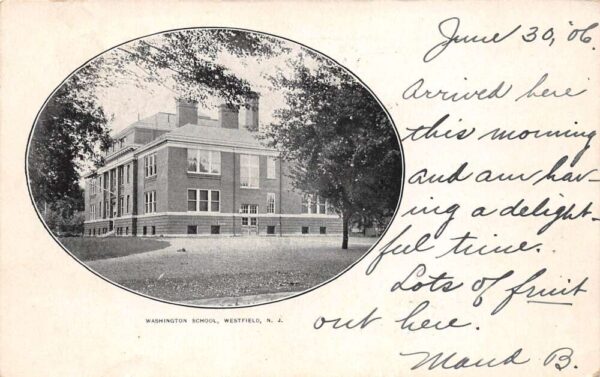 June 30, '06.
Arrived here
this morning
and am hav-
ing a delight-
ful time.
Lots of fruit
out here.
Maud B.
WASHINGTON SCHOOL, WESTFIELD, N. J.